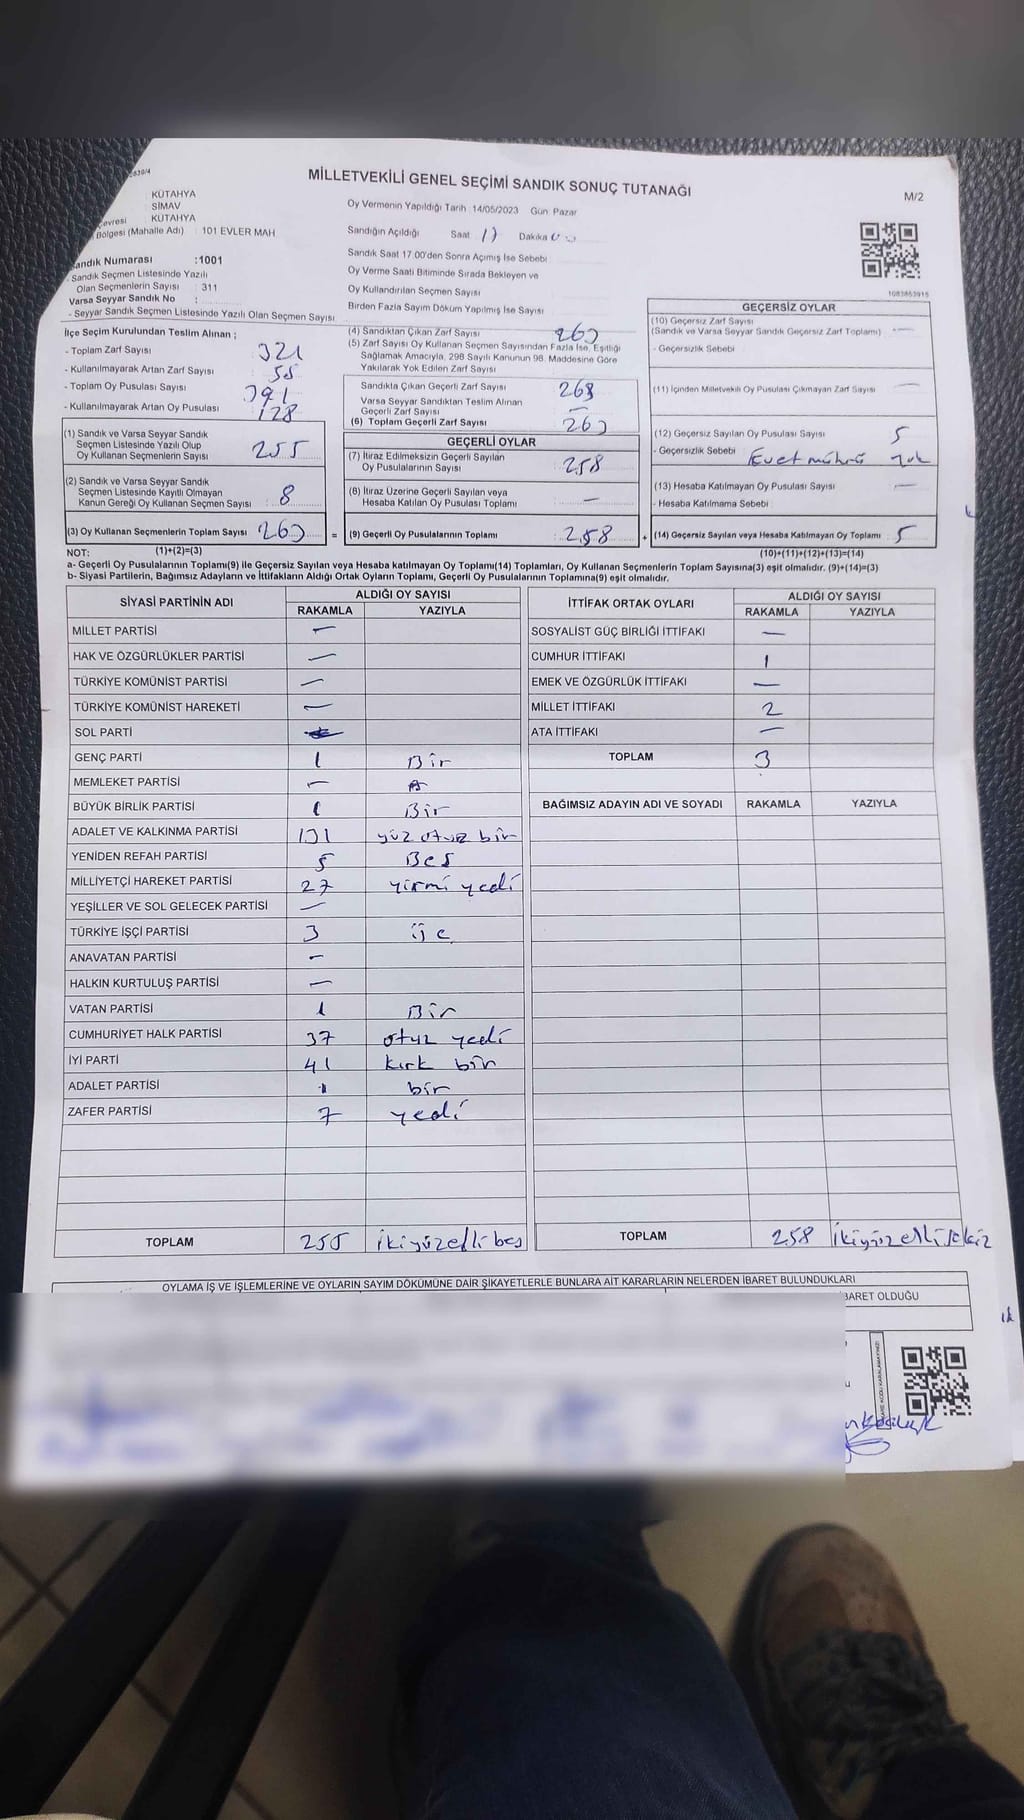 2839/4
MİLLETVEKİLİ GENEL SEÇİMİ SANDIK SONUÇ TUTANAĞI
M/2
: KÜTAHYA
: SİMAV
çevresi : KÜTAHYA
Bölgesi (Mahalle Adı) : 101 EVLER MAH
Oy Vermenin Yapıldığı Tarih : 14/05/2023 Gün: Pazar
Sandığın Açıldığı Saat 17 Dakika 00
Sandık Saat 17.00'den Sonra Açımış İse Sebebi
Oy Verme Saati Bitiminde Sırada Bekleyen ve
Oy Kullandırılan Seçmen Sayısı
Birden Fazla Sayım Döküm Yapılmış İse Sayısı
1083853915
andık Numarası :1001
- Sandık Seçmen Listesinde Yazılı
Olan Seçmenlerin Sayısı : 311
Varsa Seyyar Sandık No :
- Seyyar Sandık Seçmen Listesinde Yazılı Olan Seçmen Sayısı
İlçe Seçim Kurulundan Teslim Alınan ;
- Toplam Zarf Sayısı 321
- Kullanılmayarak Artan Zarf Sayısı 58
- Toplam Oy Pusulası Sayısı 391
- Kullanılmayarak Artan Oy Pusulası 128
(1) Sandık ve Varsa Seyyar Sandık
Seçmen Listesinde Yazılı Olup
Oy Kullanan Seçmenlerin Sayısı 255
(2) Sandık ve Varsa Seyyar Sandık
Seçmen Listesinde Kayıtlı Olmayan
Kanun Gereği Oy Kullanan Seçmen Sayısı 8
(3) Oy Kullanan Seçmenlerin Toplam Sayısı 263 =
(4) Sandıktan Çıkan Zarf Sayısı 263
(5) Zarf Sayısı Oy Kullanan Seçmen Sayısından Fazla İse, Eşitliği
Sağlamak Amacıyla, 298 Sayılı Kanunun 98. Maddesine Göre
Yakılarak Yok Edilen Zarf Sayısı
Sandıkta Çıkan Geçerli Zarf Sayısı 263
Varsa Seyyar Sandıktan Teslim Alınan
Geçerli Zarf Sayısı —
(6) Toplam Geçerli Zarf Sayısı 263
GEÇERLİ OYLAR
(7) İtiraz Edilmeksizin Geçerli Sayılan
Oy Pusulalarının Sayısı 258
(8) İtiraz Üzerine Geçerli Sayılan veya
Hesaba Katılan Oy Pusulası Toplamı —
(9) Geçerli Oy Pusulalarının Toplamı 258 +
GEÇERSİZ OYLAR
(10) Geçersiz Zarf Sayısı
(Sandık ve Varsa Seyyar Sandık Geçersiz Zarf Toplamı) —
- Geçersizlik Sebebi
(11) İçinden Milletvekili Oy Pusulası Çıkmayan Zarf Sayısı —
(12) Geçersiz Sayılan Oy Pusulası Sayısı 5
- Geçersizlik Sebebi Evet mührü yok
(13) Hesaba Katılmayan Oy Pusulası Sayısı —
- Hesaba Katılmama Sebebi
(14) Geçersiz Sayılan veya Hesaba Katılmayan Oy Toplamı 5
NOT: (1)+(2)=(3) (10)+(11)+(12)+(13)=(14)
a- Geçerli Oy Pusulalarının Toplamı(9) ile Geçersiz Sayılan veya Hesaba katılmayan Oy Toplamı(14) Toplamları, Oy Kullanan Seçmenlerin Toplam Sayısına(3) eşit olmalıdır. (9)+(14)=(3)
b- Siyasi Partilerin, Bağımsız Adayların ve İttifakların Aldığı Ortak Oyların Toplamı, Geçerli Oy Pusulalarının Toplamına(9) eşit olmalıdır.
SİYASİ PARTİNİN ADI ALDIĞI OY SAYISI
RAKAMLA YAZIYLA
MİLLET PARTİSİ —
HAK VE ÖZGÜRLÜKLER PARTİSİ —
TÜRKİYE KOMÜNİST PARTİSİ —
TÜRKİYE KOMÜNİST HAREKETİ —
SOL PARTİ
GENÇ PARTİ 1 Bir
MEMLEKET PARTİSİ —
BÜYÜK BİRLİK PARTİSİ 1 Bir
ADALET VE KALKINMA PARTİSİ 131 yüz otuz bir
YENİDEN REFAH PARTİSİ 5 Beş
MİLLİYETÇİ HAREKET PARTİSİ 27 yirmi yedi
YEŞİLLER VE SOL GELECEK PARTİSİ —
TÜRKİYE İŞÇİ PARTİSİ 3 üç
ANAVATAN PARTİSİ —
HALKIN KURTULUŞ PARTİSİ —
VATAN PARTİSİ 1 Bir
CUMHURİYET HALK PARTİSİ 37 otuz yedi
İYİ PARTİ 41 kırk bir
ADALET PARTİSİ 1 bir
ZAFER PARTİSİ 7 yedi
TOPLAM 255 ikiyüzellibeş
İTTİFAK ORTAK OYLARI ALDIĞI OY SAYISI
RAKAMLA YAZIYLA
SOSYALİST GÜÇ BİRLİĞİ İTTİFAKI —
CUMHUR İTTİFAKI 1
EMEK VE ÖZGÜRLÜK İTTİFAKI —
MİLLET İTTİFAKI 2
ATA İTTİFAKI —
TOPLAM 3
BAĞIMSIZ ADAYIN ADI VE SOYADI RAKAMLA YAZIYLA
TOPLAM 258 ikiyüzellisekiz
OYLAMA İŞ VE İŞLEMLERİNE VE OYLARIN SAYIM DÖKÜMÜNE DAİR ŞİKAYETLERLE BUNLARA AİT KARARLARIN NELERDEN İBARET BULUNDUKLARI
BARET OLDUĞU